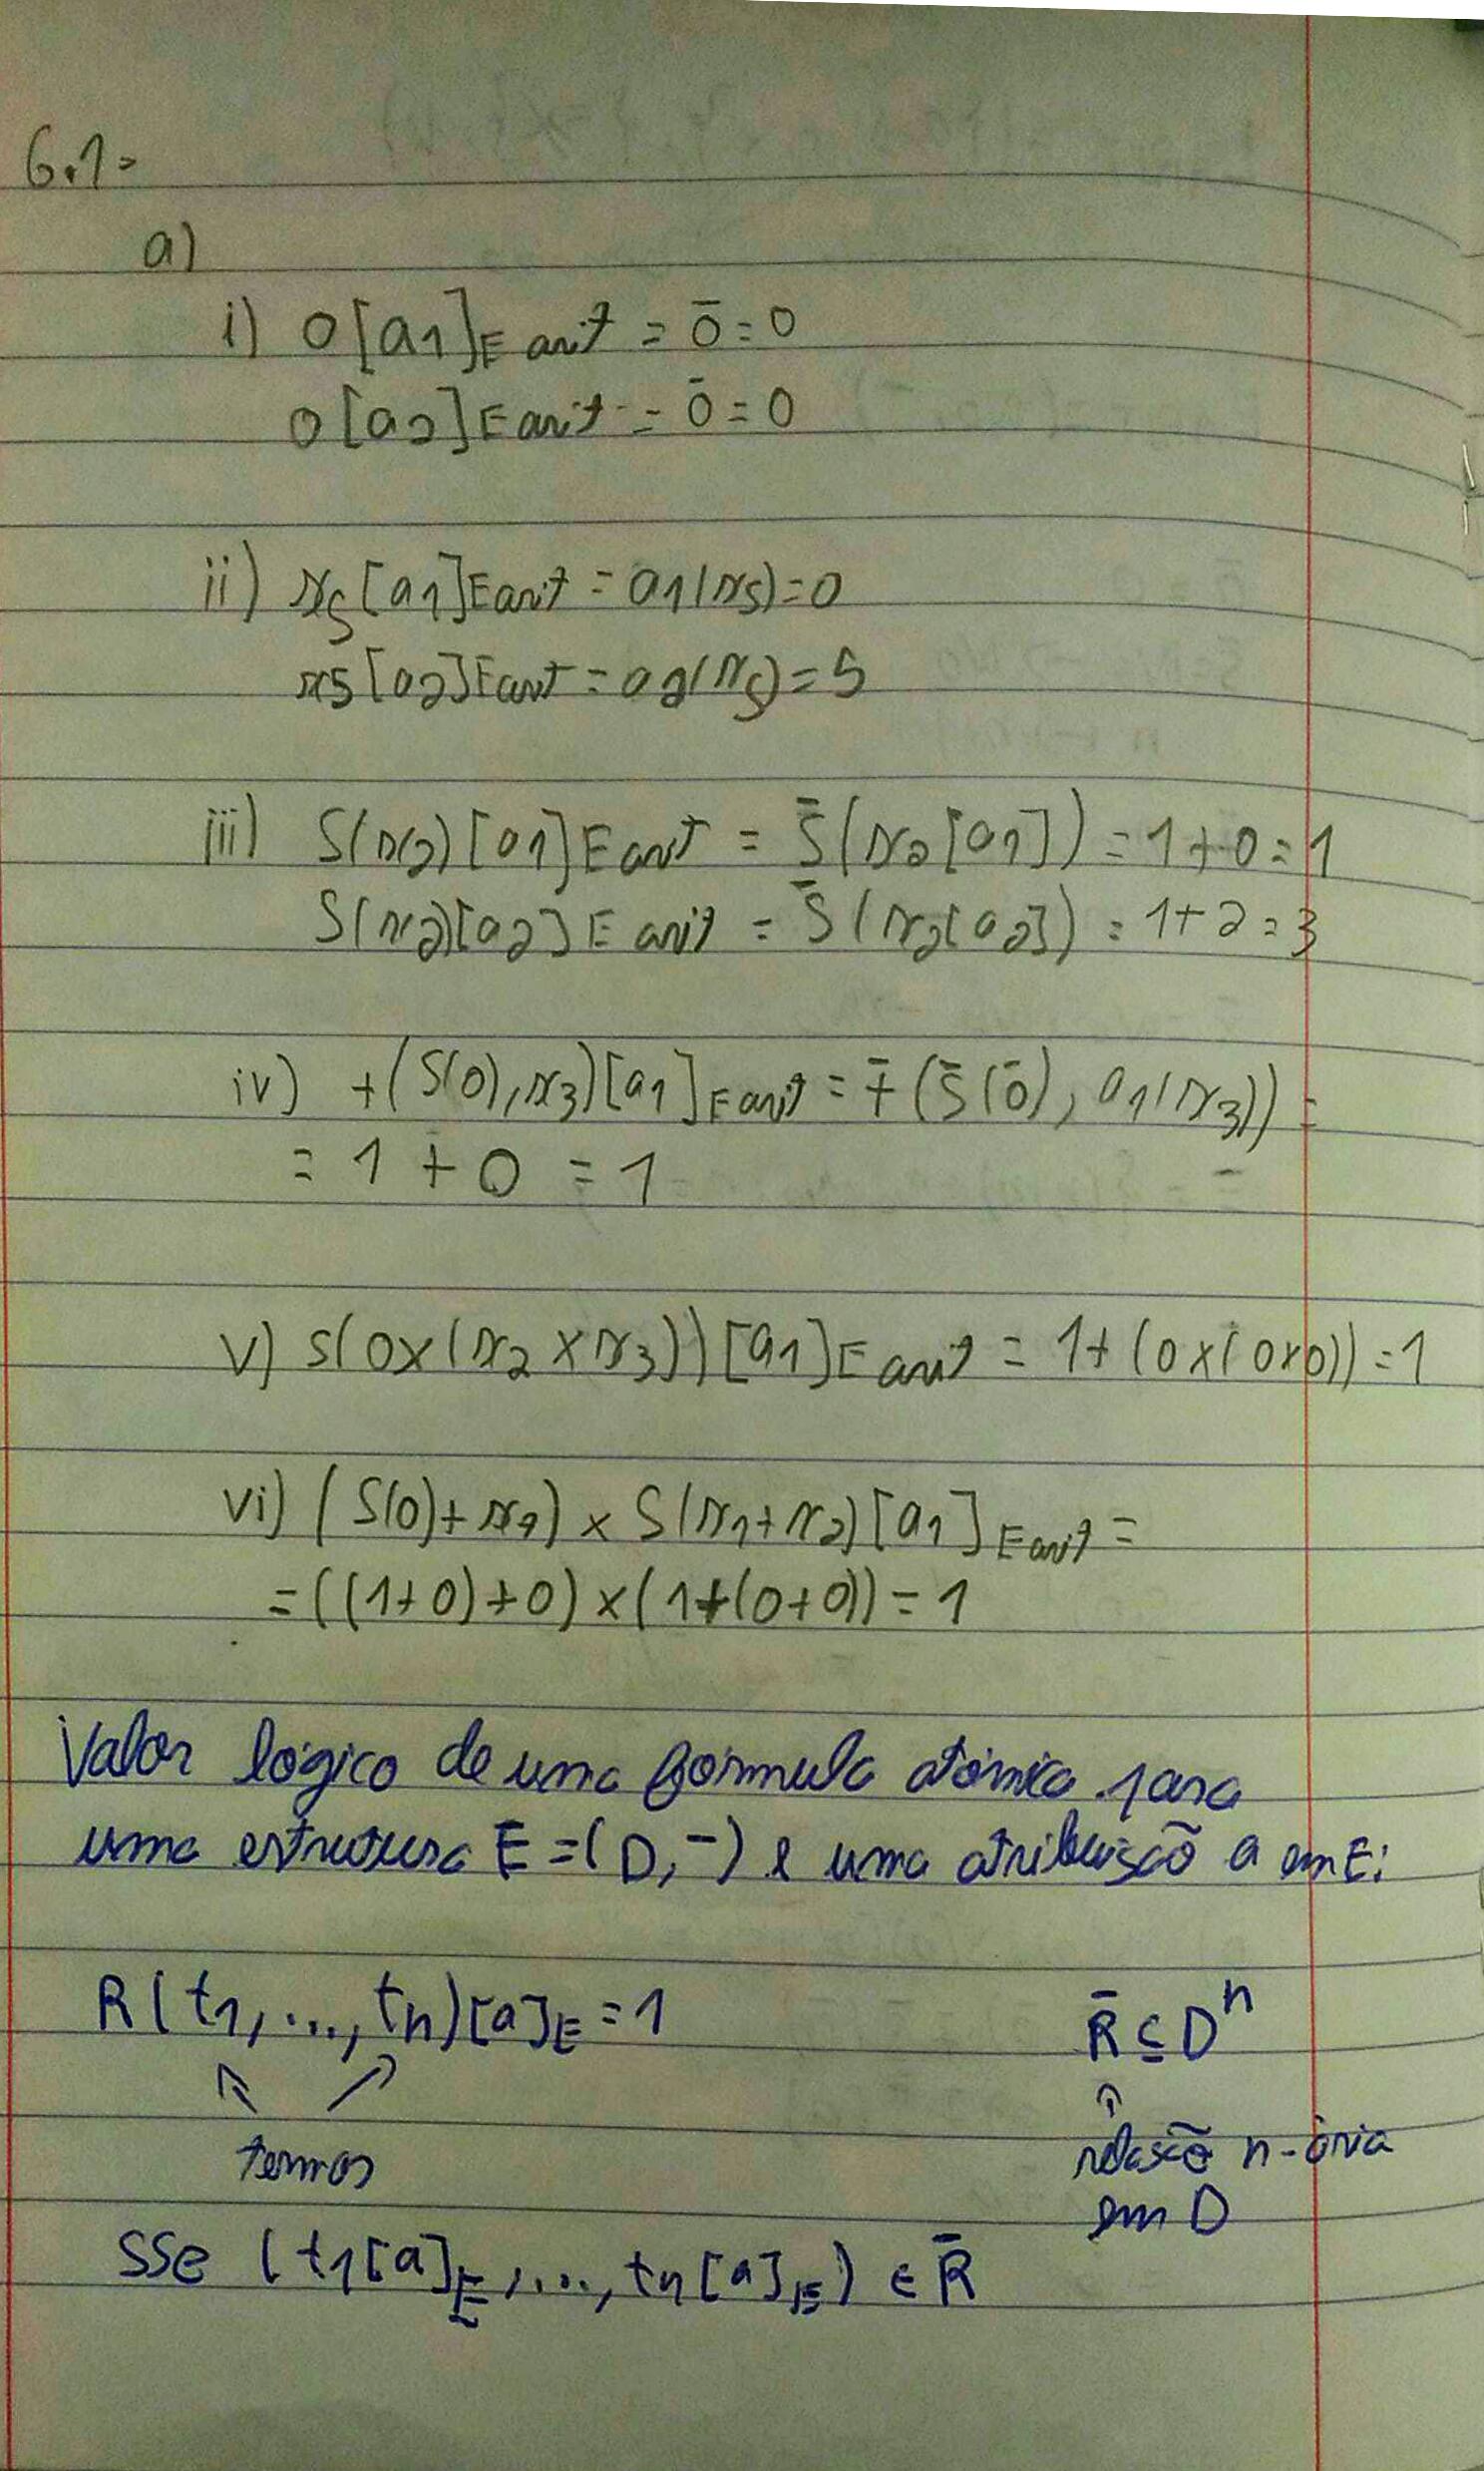 6.1-
a)
i) 0[a1]E arit = 0̄ = 0
0[a2]E arit = 0̄ = 0
ii) x5[a1]E arit = a1(x5) = 0
x5[a2]E arit = a2(x5) = 5
iii) S(x2)[a1]E arit = S̄(x2[a1]) = 1+0 = 1
S(x2)[a2]E arit = S̄(x2[a2]) = 1+2 = 3
iv) +(S(0), x3)[a1]E arit = +̄(S̄(0̄), a1(x3)) =
= 1 + 0 = 1
v) S(0×(x2×x3))[a1]E arit = 1+(0×(0×0)) = 1
vi) (S(0)+x1) × S(x1+x2)[a1]E arit =
= ((1+0)+0)×(1+(0+0)) = 1
Valor lógico de uma fórmula atómica para
uma estrutura E = (D, ‾) e uma atribuição a em E:
R(t1, ..., tn)[a]E = 1 R̄ ⊆ Dⁿ
↖ ↗ ↑
termos relação n-ária
em D
sse (t1[a]E, ..., tn[a]E) ∈ R̄